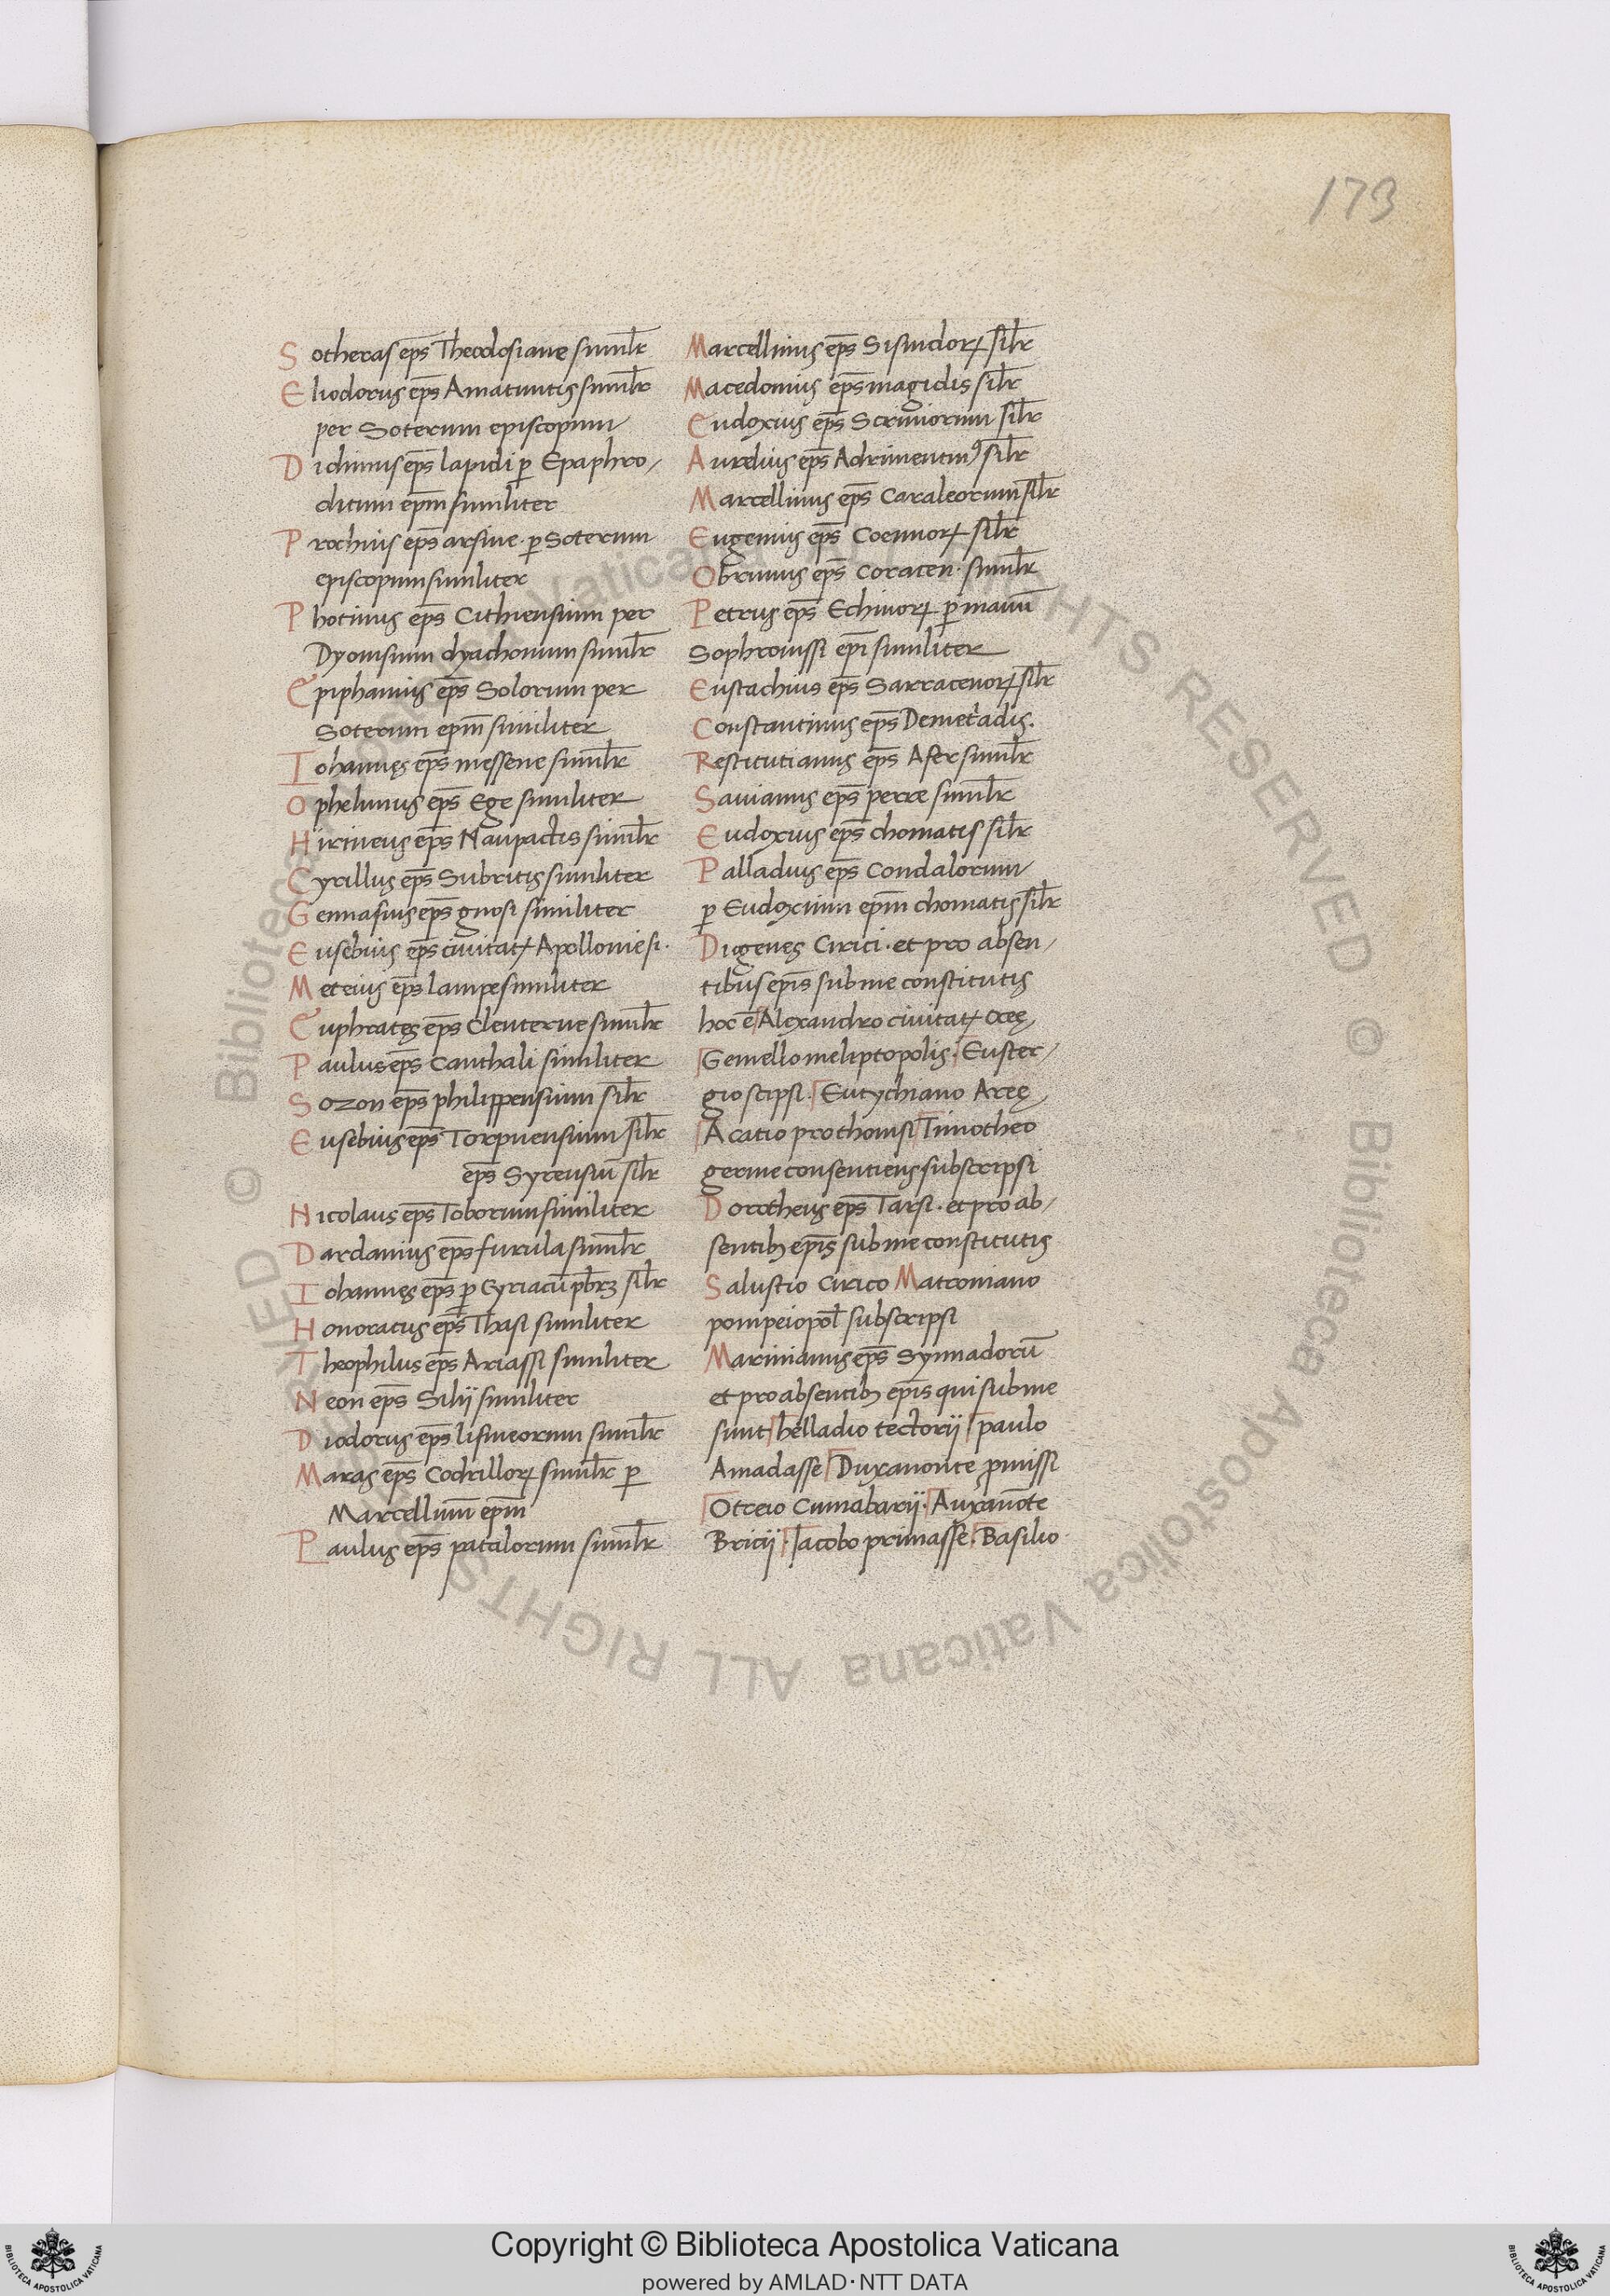 173
Sotheras ep̄s Theodosiane simil̄r
Eliodorus ep̄s Amatuntis simil̄r
per Soterum episcopum
Didimus ep̄s lapidi ꝑ Epaphro/
ditum ep̄m similiter
Prochius ep̄s arsine · ꝑ Soterum
episcopum similiter
Photinus ep̄s Cithiensium per
Dyonisium dyachonum simil̄r
Epiphanius ep̄s Solorum per
Soterum ep̄m similiter
Iohannes ep̄s messene simil̄r
Ophelimus ep̄s Ege similiter
Hirineus ep̄s Naupactis simil̄r
Cyrillus ep̄s Subritis similiter
Gennasius ep̄s gnosi similiter
Eusebius ep̄s civitatꝭ Apolloniesi ·
Meteius ep̄s lampe similiter
Euphrates ep̄s Cleuterne simil̄r
Paulus ep̄s Canthali similiter
Sozon ep̄s philippensium sil̄r
Eusebius ep̄s Torpuensium sil̄r
ep̄s Syrensiū sil̄r
Nicolaus ep̄s Toborum similiter
Dardanius ep̄s furula simil̄r
Iohannes ep̄s ꝑ Cyriacū pb̄rꝫ sil̄r
Honoratus ep̄s Thasi similiter
Theophilus ep̄s Ariassi similiter
Neon ep̄s Silij similiter
Diodorus ep̄s lisineorum simil̄r
Maras ep̄s Codrilloꝝ simil̄r ꝑ
Marcellinū ep̄m
Paulus ep̄s patalorum simil̄r
Marcellinus ep̄s Sisindoꝝ sil̄r
Macedonius ep̄s magidis sil̄r
Eudoxius ep̄s Scriniorum sil̄r
Aurelius ep̄s Adrimentinꝰ sil̄r
Marcellinus ep̄s Caraleorum sil̄r
Eugenius ep̄s Coennoꝝ sil̄r
Obrimus ep̄s Coracen · simil̄r
Petrus ep̄s Echinoꝝ ꝑ manū
Sophronissi ep̄i similiter
Eustachius ep̄s Sarracenoꝝ sil̄r
Constantinus ep̄s Demet͛adis.
Restitutianus ep̄s Afer simil̄r
Savianus ep̄s perre simil̄r
Eudoxius ep̄s chomatis sil̄r
Palladius ep̄s Condalorum
ꝑ Eudoxium ep̄m chomatis sil̄r
Digenes Cirici · et pro absen/
tibus ep̄is sub me constitutis
hoc ē Alexandro civitatꝭ ocę
Gemello meliptopolis · Euster/
gio scipsi · Eutychiano Arcę
Acatio prothonisi Timotheo
germe consentiens subscripsi
Dorotheus ep̄s Tarsi · et pro ab/
sentibꝫ ep̄is sub me constitutis
Salustio Cirico Matroniano
pompeiopol̄ subscripsi
Marinianus ep̄s Synnadorū
et pro absentibꝫ ep̄is qui sub me
sunt helladio tectorij paulo
Amadasse Duxanonte ꝓmissi
Otreio Cumabarij · Auxanōte
Bricij · Jacobo primasse · Basilio
© Biblioteca Apostolica Vaticana ALL RIGHTS RESERVED © Biblioteca Apostolica Vaticana ALL RIGHTS RESERVED
Copyright © Biblioteca Apostolica Vaticana
powered by AMLAD·NTT DATA
BIBLIOTECA APOSTOLICA VATICANA
BIBLIOTECA APOSTOLICA VATICANA